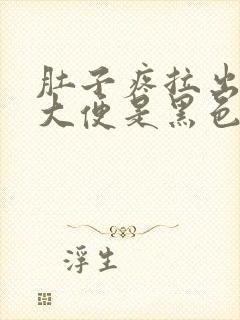 肚子疼拉出
大便是黑色
浮生